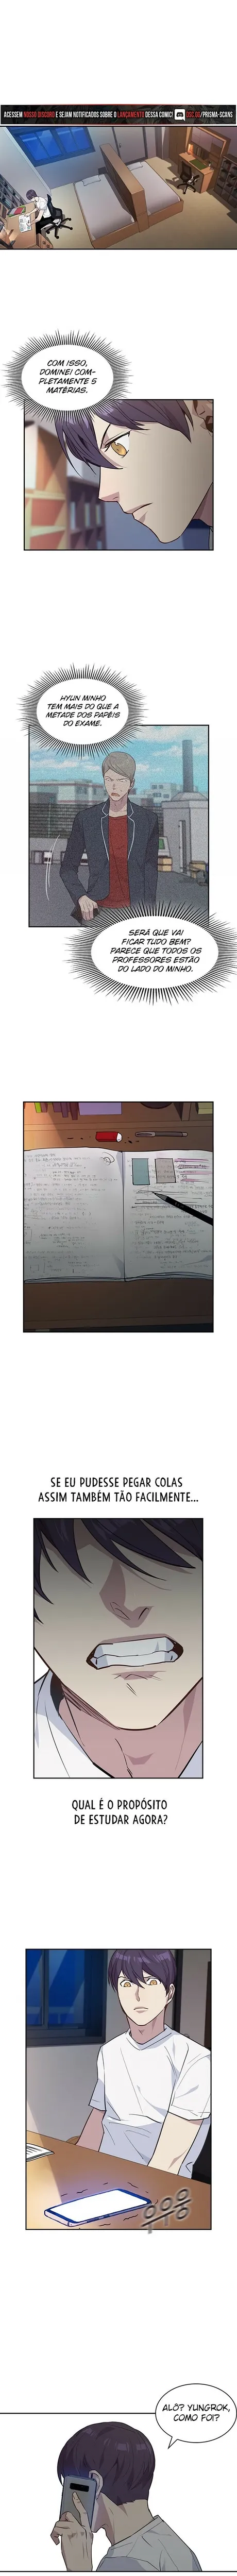 ACESSEM NOSSO DISCORD E SEJAM NOTIFICADOS SOBRE O LANÇAMENTO DESSA COMIC! DSC.GG/PRISMA-SCANS
COM ISSO,
DOMINEI COM-
PLETAMENTE 5
MATÉRIAS.
HYUN MINHO
TEM MAIS DO QUE A
METADE DOS PAPÉIS
DO EXAME.
SERÁ QUE VAI
FICAR TUDO BEM?
PARECE QUE TODOS OS
PROFESSORES ESTÃO
DO LADO DO MINHO.
SE EU PUDESSE PEGAR COLAS
ASSIM TAMBÉM TÃO FACILMENTE...
QUAL É O PROPÓSITO
DE ESTUDAR AGORA?
우우웅
ALÔ? YUNGROK,
COMO FOI?